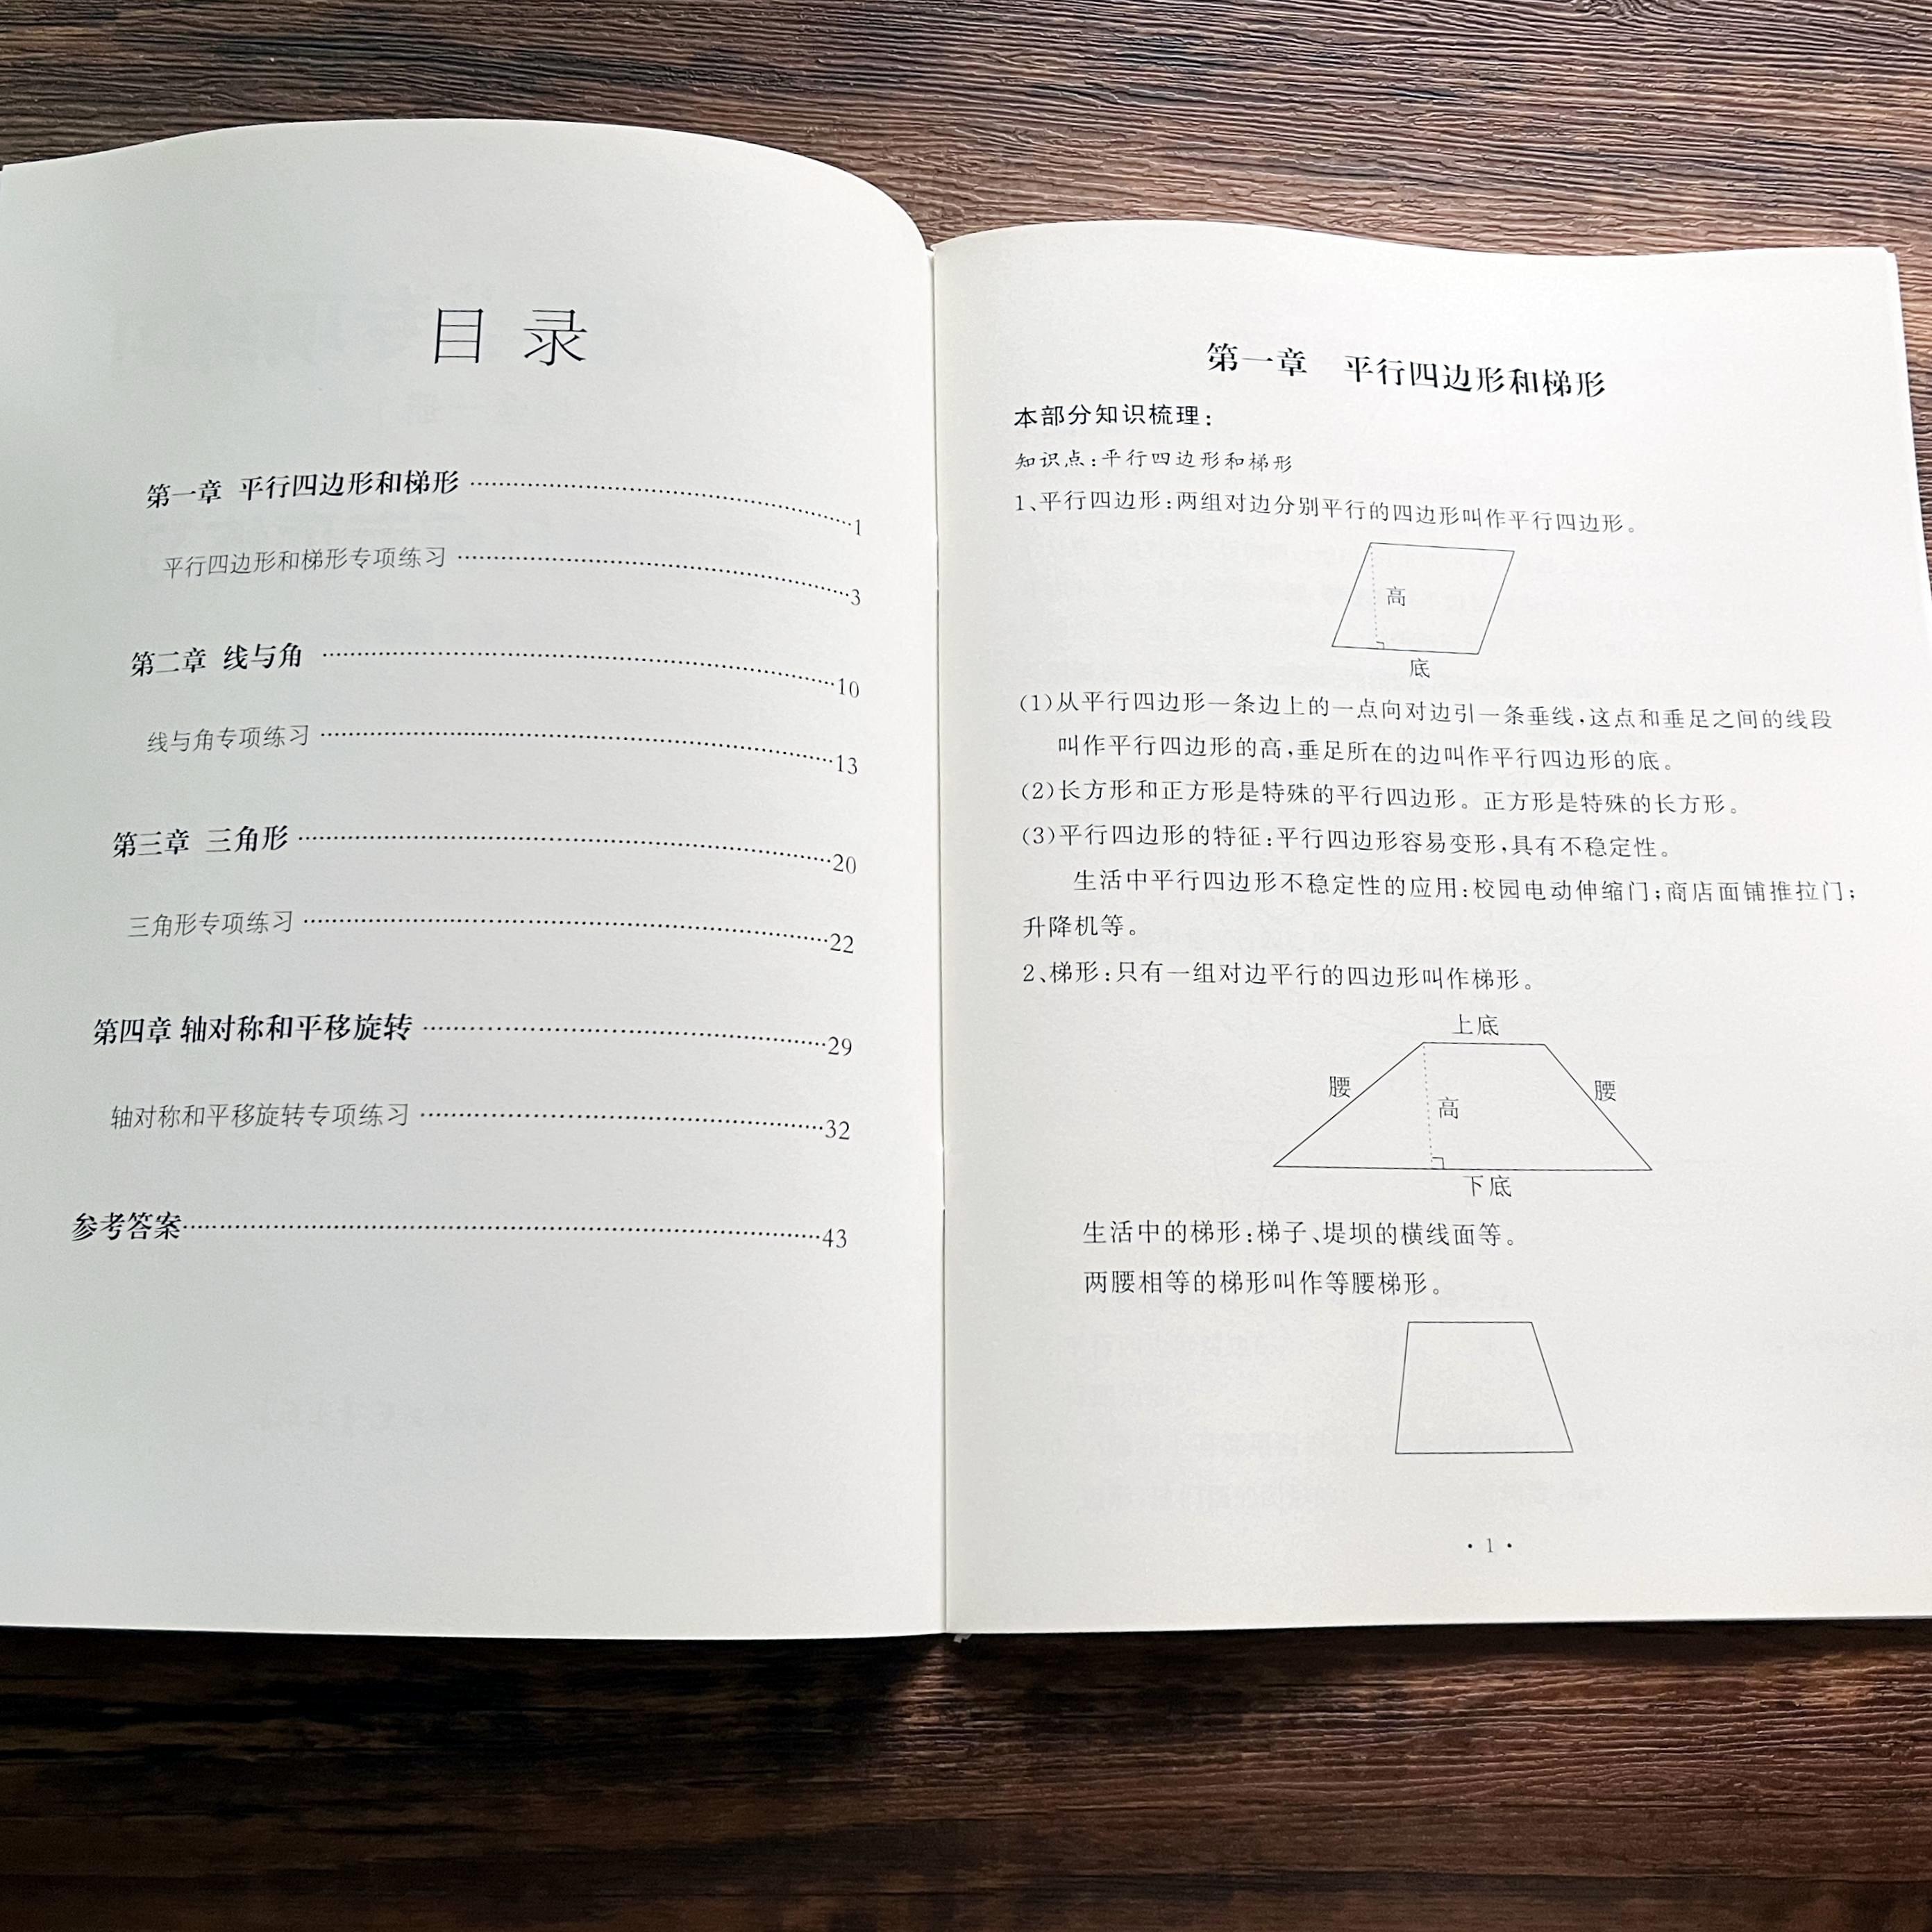 目录
第一章 平行四边形和梯形 1
平行四边形和梯形专项练习 3
第二章 线与角 10
线与角专项练习 13
第三章 三角形 20
三角形专项练习 22
第四章 轴对称和平移旋转 29
轴对称和平移旋转专项练习 32
参考答案 43
第一章 平行四边形和梯形
本部分知识梳理:
知识点:平行四边形和梯形
1、平行四边形:两组对边分别平行的四边形叫作平行四边形。
高
底
(1)从平行四边形一条边上的一点向对边引一条垂线,这点和垂足之间的线段
叫作平行四边形的高,垂足所在的边叫作平行四边形的底。
(2)长方形和正方形是特殊的平行四边形。正方形是特殊的长方形。
(3)平行四边形的特征:平行四边形容易变形,具有不稳定性。
生活中平行四边形不稳定性的应用:校园电动伸缩门;商店面铺推拉门;
升降机等。
2、梯形:只有一组对边平行的四边形叫作梯形。
上底
腰 腰
高
下底
生活中的梯形:梯子、堤坝的横线面等。
两腰相等的梯形叫作等腰梯形。
· 1 ·